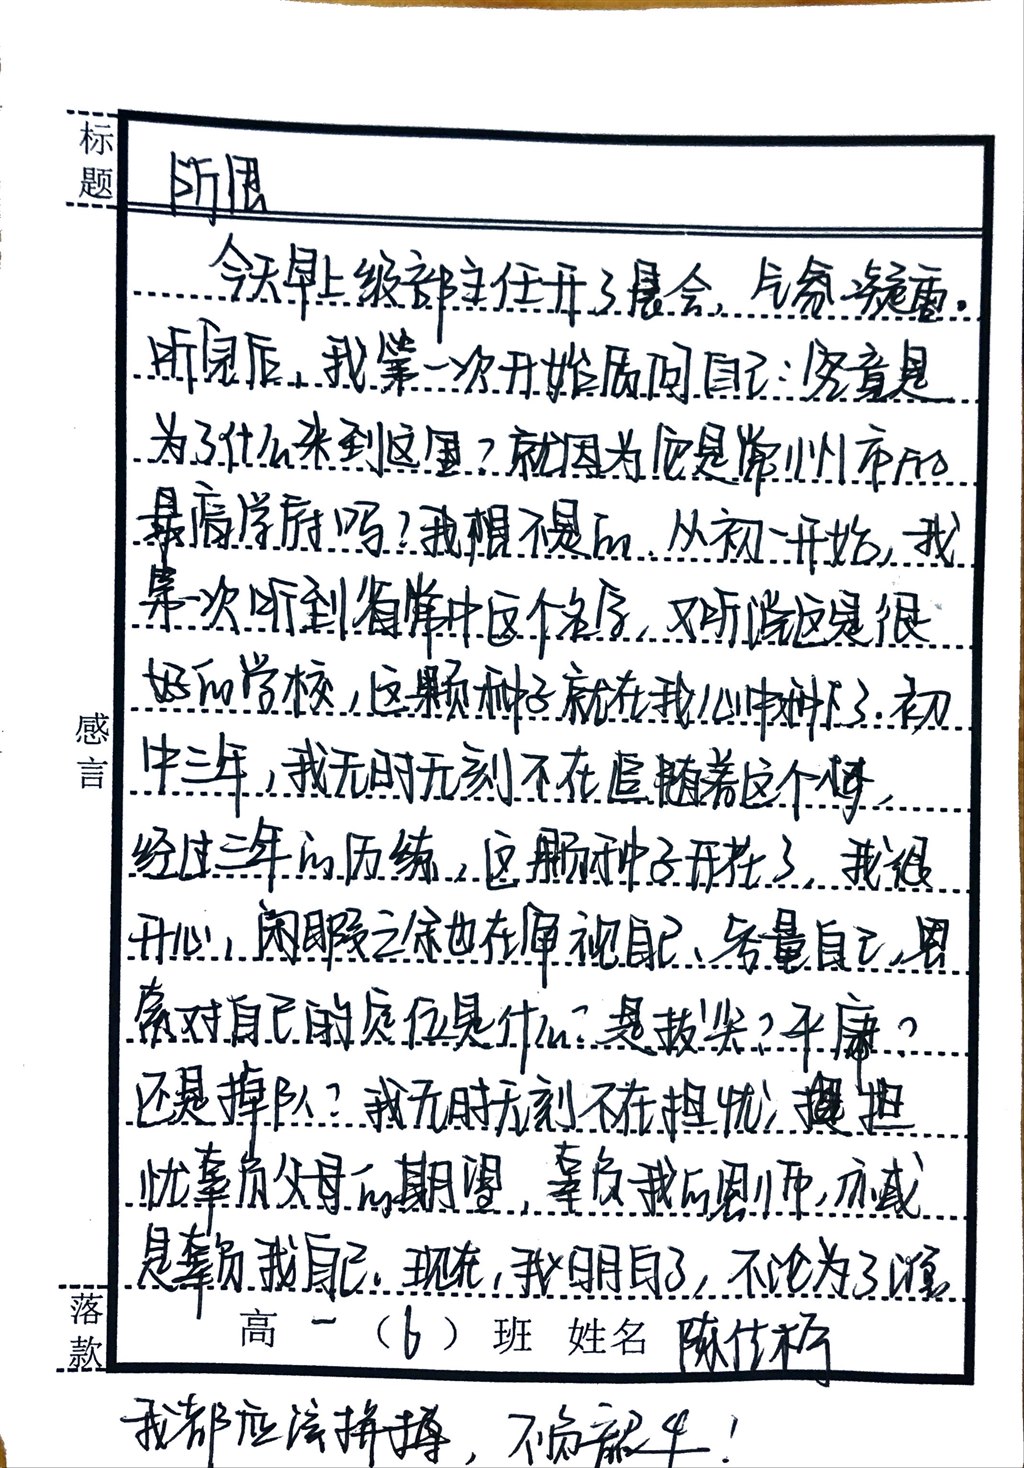 标题
所思
今天早上级部主任开了晨会，气氛凝重。
听完后，我第一次开始质问自己：究竟是
为了什么来到这里？就因为它是常州市的
最高学府吗？我想不是的．从初一开始，我
第一次听到省常中这个名字，又听说这是很
好的学校，这颗种子就在我心中种下了．初
中三年，我无时无刻不在追随着这个梦，
经过三年的历练，这颗种子开花了，我很
开心，闲暇之余也在审视自己、考量自己，思
索对自己的定位是什么？是拔尖？平庸？
还是掉队？我无时无刻不在担忧，担
忧辜负父母的期望，辜负我的恩师，亦或
是辜负我自己．现在，我明白了，不论为了谁
感言
落款
高一（6）班 姓名 陈仕
我都应该拼搏，不负韶华！